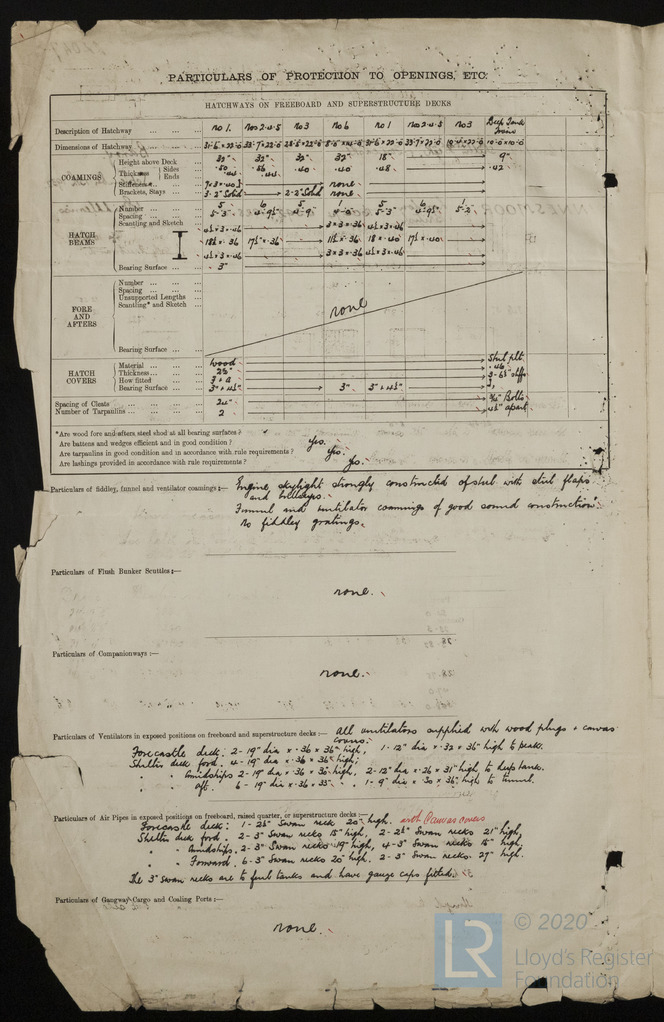 PARTICULARS OF PROTECTION TO OPENINGS, ETC.
HATCHWAYS ON FREEBOARD AND SUPERSTRUCTURE DECKS
Description of Hatchway ... no 1. nos 2.4.5 no 3 No 6 no 1 nos 2.4.5 no 3 Deep Tank
Dimensions of Hatchway
COAMINGS
Height above Deck 32" 32" 32" 32" 18" 9"
Thickness { Sides .50 .40 .40 .48 .42
Ends .44 .44
Stiffeners none
Brackets, Stays ... 2-2" Solid none
HATCH BEAMS
Number 5 6 5 1 5 6 5
Spacing 5-3" 4-9½" 4-9" 4-0" 5-3" 4-9½" 5-2"
Scantling and Sketch 4½ × 3 × .46 3 × 3 × .36 4½ × 3 × .46
17½ × .36 11½ × .36 18 × .40 17½ × .40
4½ × 3 × .46 3 × 3 × .36 4½ × 3 × .46
Bearing Surface 3"
FORE AND AFTERS
Number
Spacing
Unsupported Lengths
Scantling* and Sketch
none
Bearing Surface
HATCH COVERS
Material wood Steel plt.
Thickness 2½" .46
How fitted F + A
Bearing Surface 3" + 4½" 3" 3" + 4½"
Spacing of Cleats 24" Bolts
Number of Tarpaulins 2 4½" apart
*Are wood fore and afters steel shod at all bearing surfaces?
Are battens and wedges efficient and in good condition? Yes.
Are tarpaulins in good condition and in accordance with rule requirements? Yes.
Are lashings provided in accordance with rule requirements? Yes.
Particulars of fiddley, funnel and ventilator coamings:— Engine skylight strongly constructed of steel with steel flaps
and bullseyes.
Funnel and ventilator coamings of good sound construction.
No fiddley gratings.
Particulars of Flush Bunker Scuttles:—
none.
Particulars of Companionways:—
none.
Particulars of Ventilators in exposed positions on freeboard and superstructure decks:— All ventilators supplied with wood plugs + canvas
covers.
Forecastle deck: 2-19" dia × .36 × 36" high, 1-12" dia × .32 × 36" high to peak.
Shelter deck ford. 4-19" dia × .36 × 36" high;
" " Amidships 2-19" dia × .36 × 36" high, 2-12" dia × .26 × 31" high to deep tanks.
" " aft. 6-19" dia × .36 × 33" " 1-9" dia × .30 × 36" high to tunnel.
Particulars of Air Pipes in exposed positions on freeboard, raised quarter, or superstructure decks:—
Forecastle deck: 1-2½" Swan neck 20" high. with Canvas covers
Shelter deck ford. 2-3" Swan necks 15" high, 2-2½" Swan necks 21" high,
" " Amidships. 2-3" Swan necks 19" high, 4-3" Swan necks 15" high,
" " Forward. 6-3" Swan necks 20" high. 2-3" Swan necks. 27" high.
The 3" Swan necks are to fuel tanks and have gauze caps fitted.
Particulars of Gangway, Cargo and Coaling Ports:—
none.
LR
© 2020
Lloyd's Register
Foundation